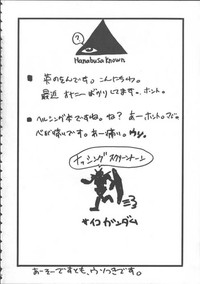 ?
Hanabusa Known
■ 英のをんです。こんにちわ。
最近 オナニーばかりしてます。ホント。
■ ヘルシング本ですね。ね? あーホント。
心が痛いです。あー痛い。ウソ。
ナッシング スクリーントーン
サイコ ガンダム
あーそーですとも、ウソつきです。